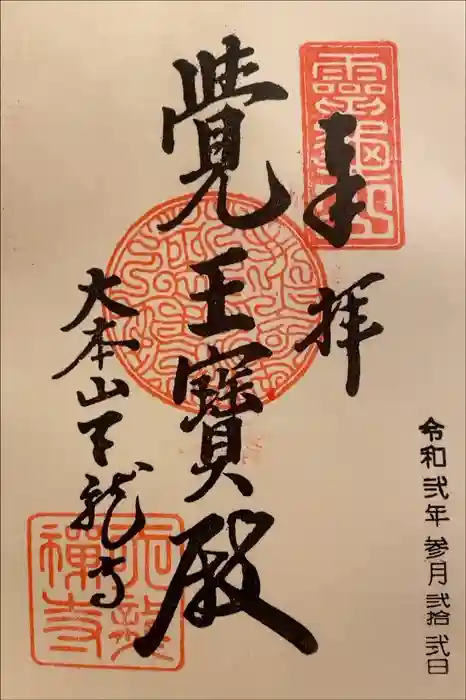 奉拝
覺王寶殿
大本山天龍寺
令和弐年 参月 弐拾弐日
靈龜山